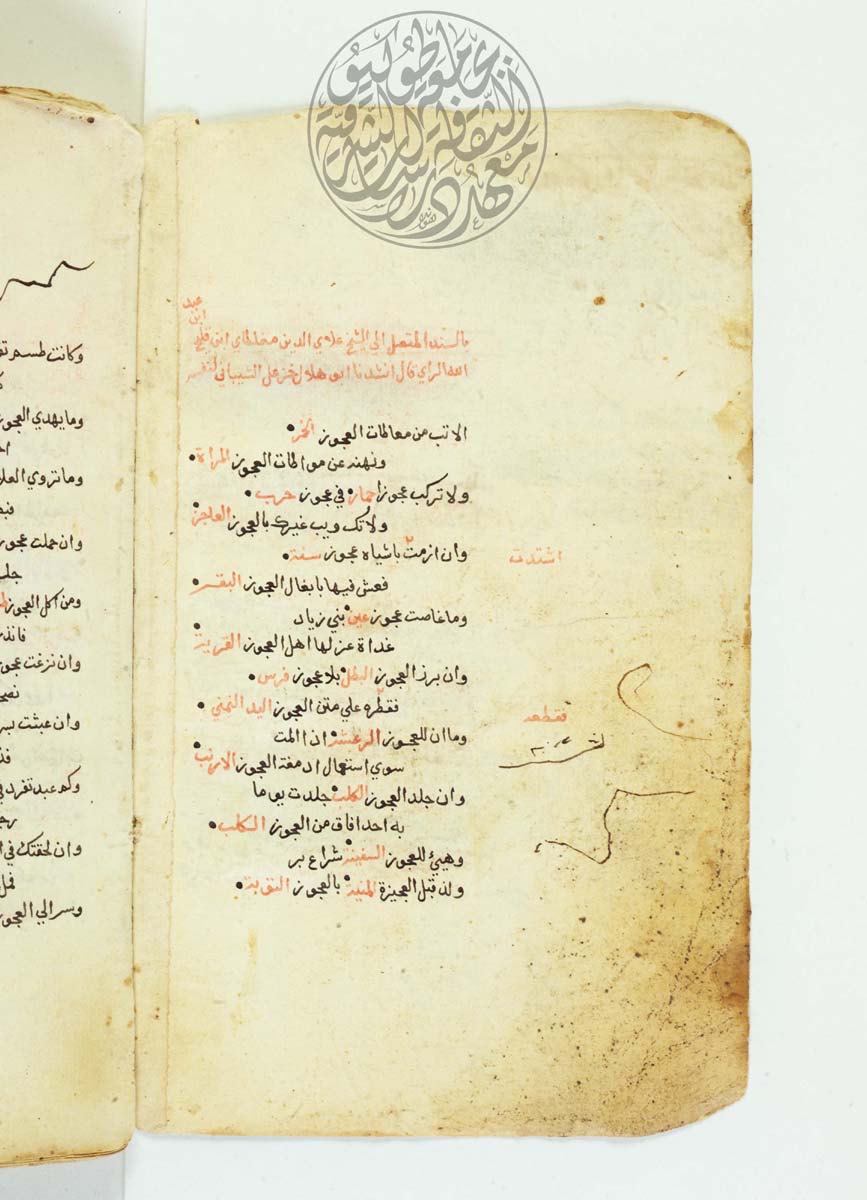 جامعة طوكيو
معهد دراسات الثقافة الشرقية
عبد
ابن
بالسند المتصل الي الشيخ علاي الدين مغلطاي ابن قليج
الله الراي قال انشدنا ابو هلال خزعل الشيباني لنفسه
الا تب من معاطات العجوز الخمر
ونهنه عن مواطات العجوز المراة
ولا تركب عجوزا حمار في عجوز حرب
ولا تك ويب غيرك بالعجوز العاجز
وان ازمت باشياه عجوز سنة
اشتدت
فعش فيها بابغال العجوز البقر
وما غاصت عجوز عين بني زياد
غداة عزلها اهل العجوز القرية
وان برز العجوز البطل بلا عجوز فرس
فقطره علي متن العجوز اليد اليمني
فقطعه
وما ان للعجوز الرعشة ان المت
سوي استعمال ادمغة العجوز الارنب
وان جلد العجوز الكلب جلدت يوما
به احدا فاق من العجوز الكلب
وهيئ للعجوز السفينة شراع بر
ولذ قبل العجيزة المنية بالعجوز التوبة
وكانت طسم
وما يهدي العجوز
وما تروي
وان حملت عجوز
ومن اكل العجوز
وان نزغت عجوز
وان عبثت
وكم عبد تفرد في
وان لحقتك في
وسر الي العجوز